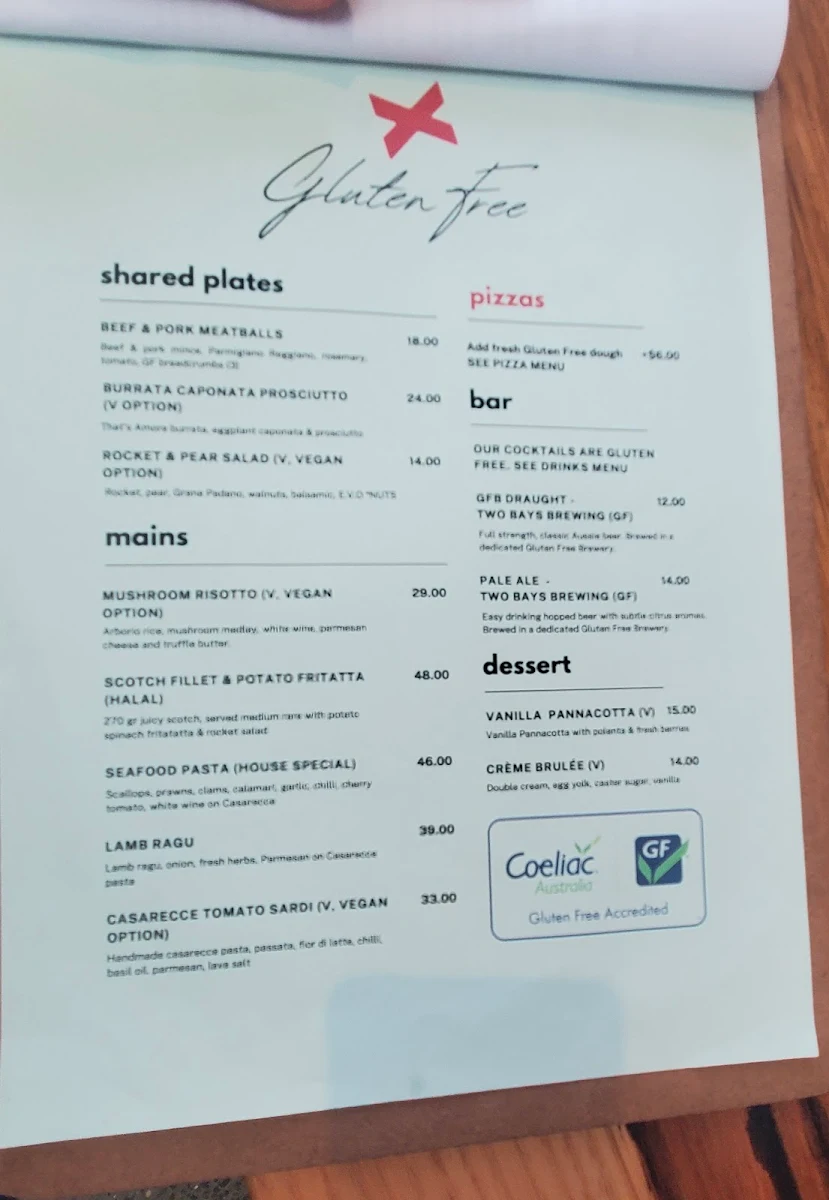 Gluten Free
shared plates
BEEF & PORK MEATBALLS 18.00
Beef & pork mince, Parmigiano Reggiano, rosemary,
tomato, GF breadcrumbs (3)
BURRATA CAPONATA PROSCIUTTO 24.00
(V OPTION)
That's Amore burrata, eggplant caponata & prosciutto
ROCKET & PEAR SALAD (V, VEGAN 14.00
OPTION)
Rocket, pear, Grana Padano, walnuts, balsamic, E.V.O *NUTS
mains
MUSHROOM RISOTTO (V, VEGAN 29.00
OPTION)
Arborio rice, mushroom medley, white wine, parmesan
cheese and truffle butter.
SCOTCH FILLET & POTATO FRITATTA 48.00
(HALAL)
270 gr juicy scotch, served medium rare with potato
spinach fritatatta & rocket salad
SEAFOOD PASTA (HOUSE SPECIAL) 46.00
Scallops, prawns, clams, calamari, garlic, chilli, cherry
tomato, white wine on Casarecca
LAMB RAGU 39.00
Lamb ragu, onion, fresh herbs, Parmesan on Casarecce
pasta
CASARECCE TOMATO SARDI (V, VEGAN 33.00
OPTION)
Handmade casarecce pasta, passata, fior di latte, chilli,
basil oil, parmesan, lava salt
pizzas
Add fresh Gluten Free dough +$6.00
SEE PIZZA MENU
bar
OUR COCKTAILS ARE GLUTEN
FREE. SEE DRINKS MENU
GFB DRAUGHT - 12.00
TWO BAYS BREWING (GF)
Full strength, classic Aussie beer. Brewed in a
dedicated Gluten Free Brewery.
PALE ALE - 14.00
TWO BAYS BREWING (GF)
Easy drinking hopped beer with subtle citrus aromas.
Brewed in a dedicated Gluten Free Brewery.
dessert
VANILLA PANNACOTTA (V) 15.00
Vanilla Pannacotta with polenta & fresh berries
CRÈME BRULÉE (V) 14.00
Double cream, egg yolk, castor sugar, vanilla
Coeliac
Australia
GF
Gluten Free Accredited